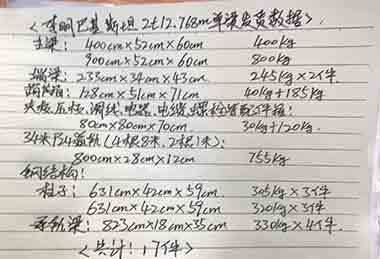 <李明巴基斯坦2t12.768m单梁发货数据>
主梁: 400cm×52cm×60cm 400kg
900cm×52cm×60cm 800kg
端梁: 235cm×34cm×43cm 245kg×2件
葫芦箱: 128cm×51cm×71cm 40kg+185kg
夹板,压板,滑线,电器,电缆,螺栓等配件箱:
80cm×80cm×70cm 30kg+120kg
34米P24 (4根8米,2根1米):
800cm×28cm×12cm 755kg
钢结构:
柱子: 631cm×42cm×59cm 305kg×3件
631cm×42cm×59cm 320kg×3件
承轨梁: 823cm×18cm×35cm 330kg×4件
<共计:17件>